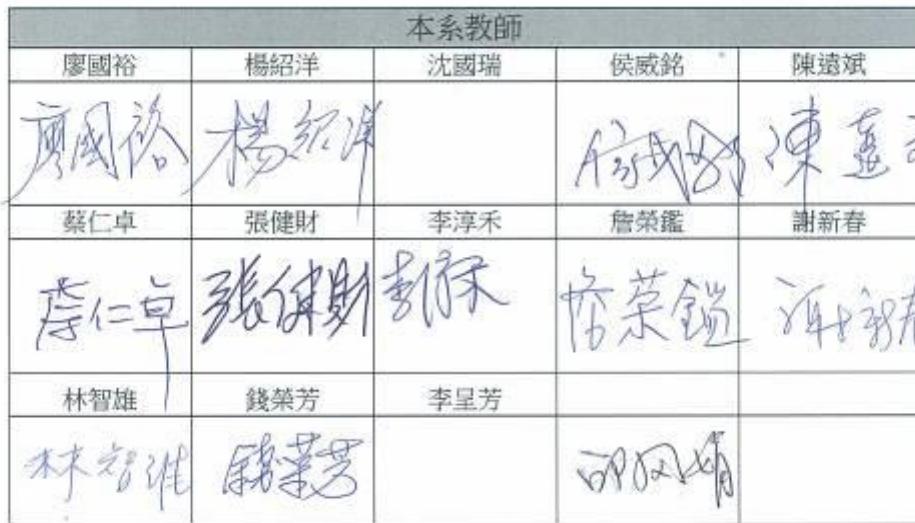 本系教師
廖國裕 楊紹洋 沈國瑞 侯威銘 陳遠斌
廖國裕 楊紹洋 侯威銘 陳遠
蔡仁卓 張健財 李淳禾 詹榮鑑 謝新春
蔡仁卓 張健財 李淳禾 詹榮鑑 謝新春
林智雄 錢榮芳 李呈芳
林智雄 錢榮芳